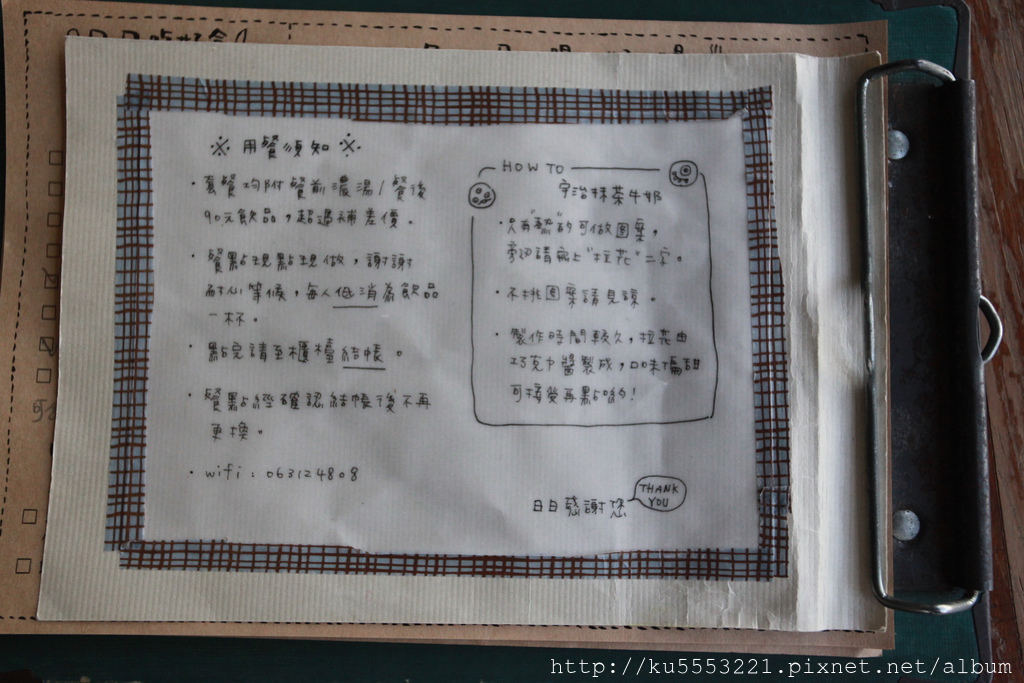 ※ 用餐須知 ※
・套餐均附餐前濃湯/餐後
90元飲品，超過補差價。
・餐點現點現做，謝謝
耐心等候，每人低消為飲品
一杯。
・點完請至櫃檯結帳。
・餐點經確認結帳後不再
更換。
・wifi：063124808
HOW TO
宇治抹茶牛奶
・只有"熱"的可做圖案，
旁邊請寫上"拉花"二字。
・不挑圖案請見諒。
・製作時間較久，拉花由
巧克力醬製成，口味偏甜
可接受再點哟！
日日感謝您
THANK
YOU
http://ku5553221.pixnet.net/album